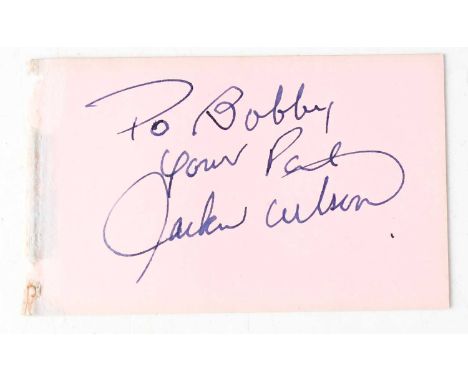 To Bobby
your Pal
Jackie Wilson